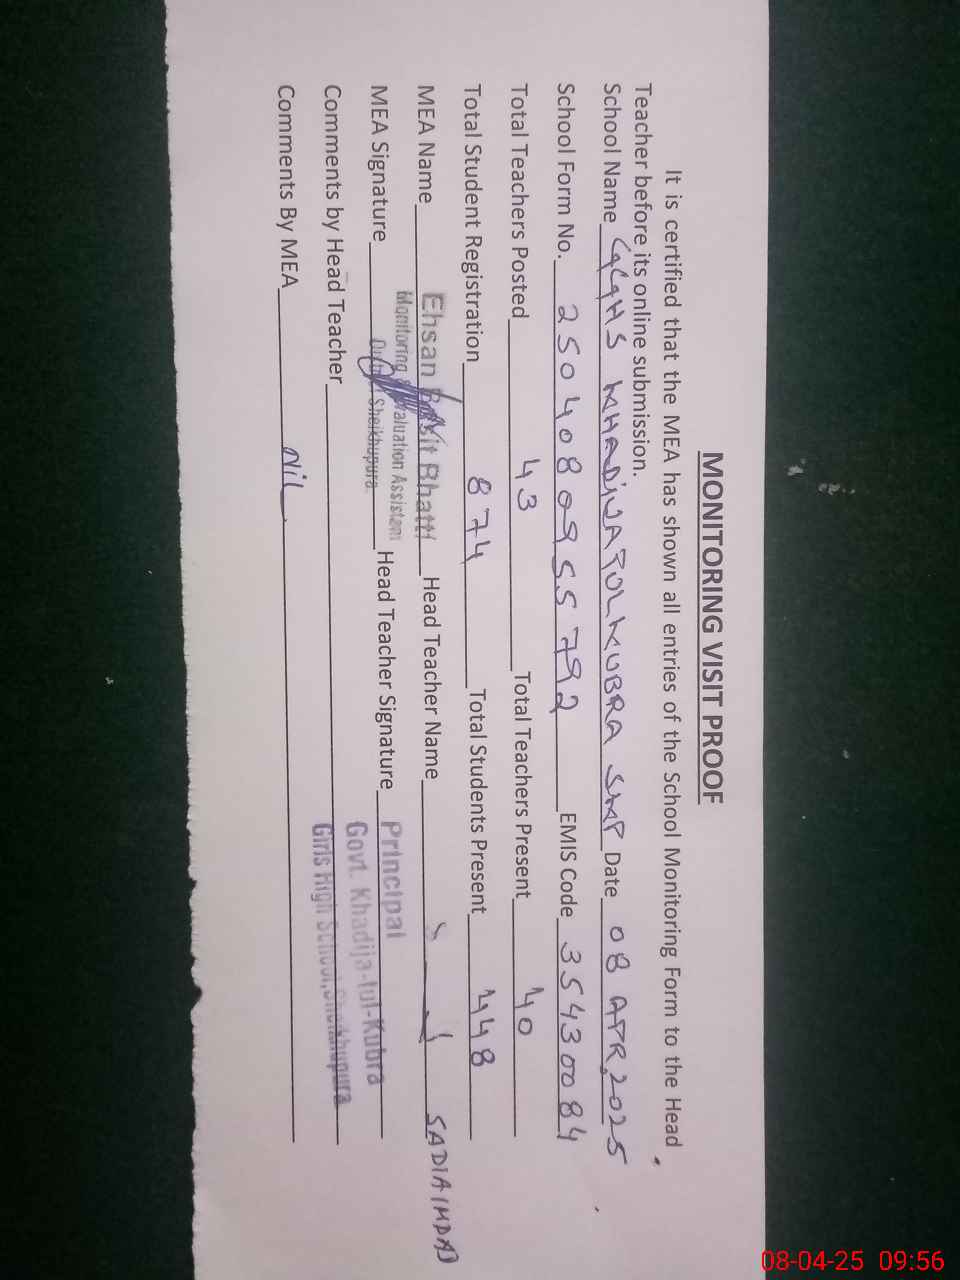 MONITORING VISIT PROOF
It is certified that the MEA has shown all entries of the School Monitoring Form to the Head
Teacher before its online submission.
School Name GGHS KHADIJATUL KUBRA SKP Date 08 APR, 2025
School Form No. 2504080955792 EMIS Code 35430084
Total Teachers Posted 43 Total Teachers Present 40
Total Student Registration 874 Total Students Present 448
MEA Name Ehsan Basit Bhatti Head Teacher Name SADIA IMDAD
Monitoring & Evaluation Assistant
MEA Signature Sheikhupura. Head Teacher Signature Principal
Govt. Khadija-tul-Kubra
Comments by Head Teacher Girls High School, Sheikhupura
Comments By MEA Nil
08-04-25 09:56